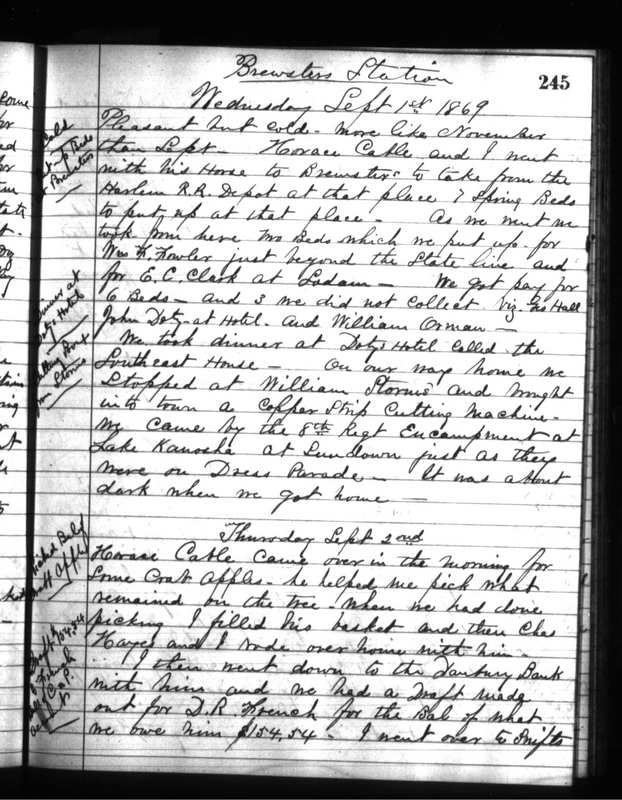 Brewsters Station
245
Wednesday Sept 1st 1869
Pleasant but cold - more like November
than Sept - Horace Cable and I went
with his Horse to Brewsters to take from the
Harlem R.R. Depot at that place 7 Spring Beds
to put up at that place - As we went we
took from here two Beds which we put up for
Wm H. Fowler just beyond the State line and
for E. C. Clark at Sodam - We got pay for
6 Beds - and 3 we did not collect Viz. Geo Hall
John Doty - at Hotel - and William Orman -
We took dinner at Dotys Hotel called the
Southeast House - On our way home we
Stopped at William Storms and brought
into town a Copper Strip Cutting Machine -
We came by the 8th Regt Encampment at
Lake Kanosha at Sundown just as they
were on Dress Parade - It was about
dark when we got home -
Thursday Sept 2nd
Horace Cable came over in the morning for
Some Crab Apples - he helped me pick what
remained on the tree - when we had done
picking I filled his basket and then Chas
Hayes and I rode over home with him -
I then went down to the Danbury Bank
with him and we had a Draft made
out for D. R. French for the Bal of what
we owe him $154.54 - I went over to Swifts
Cold
put up Beds
Brewsters
Dinner at
Dotys Hotel
from Storms
Picked Bal of
Crab Apples
Draft $154.54
French